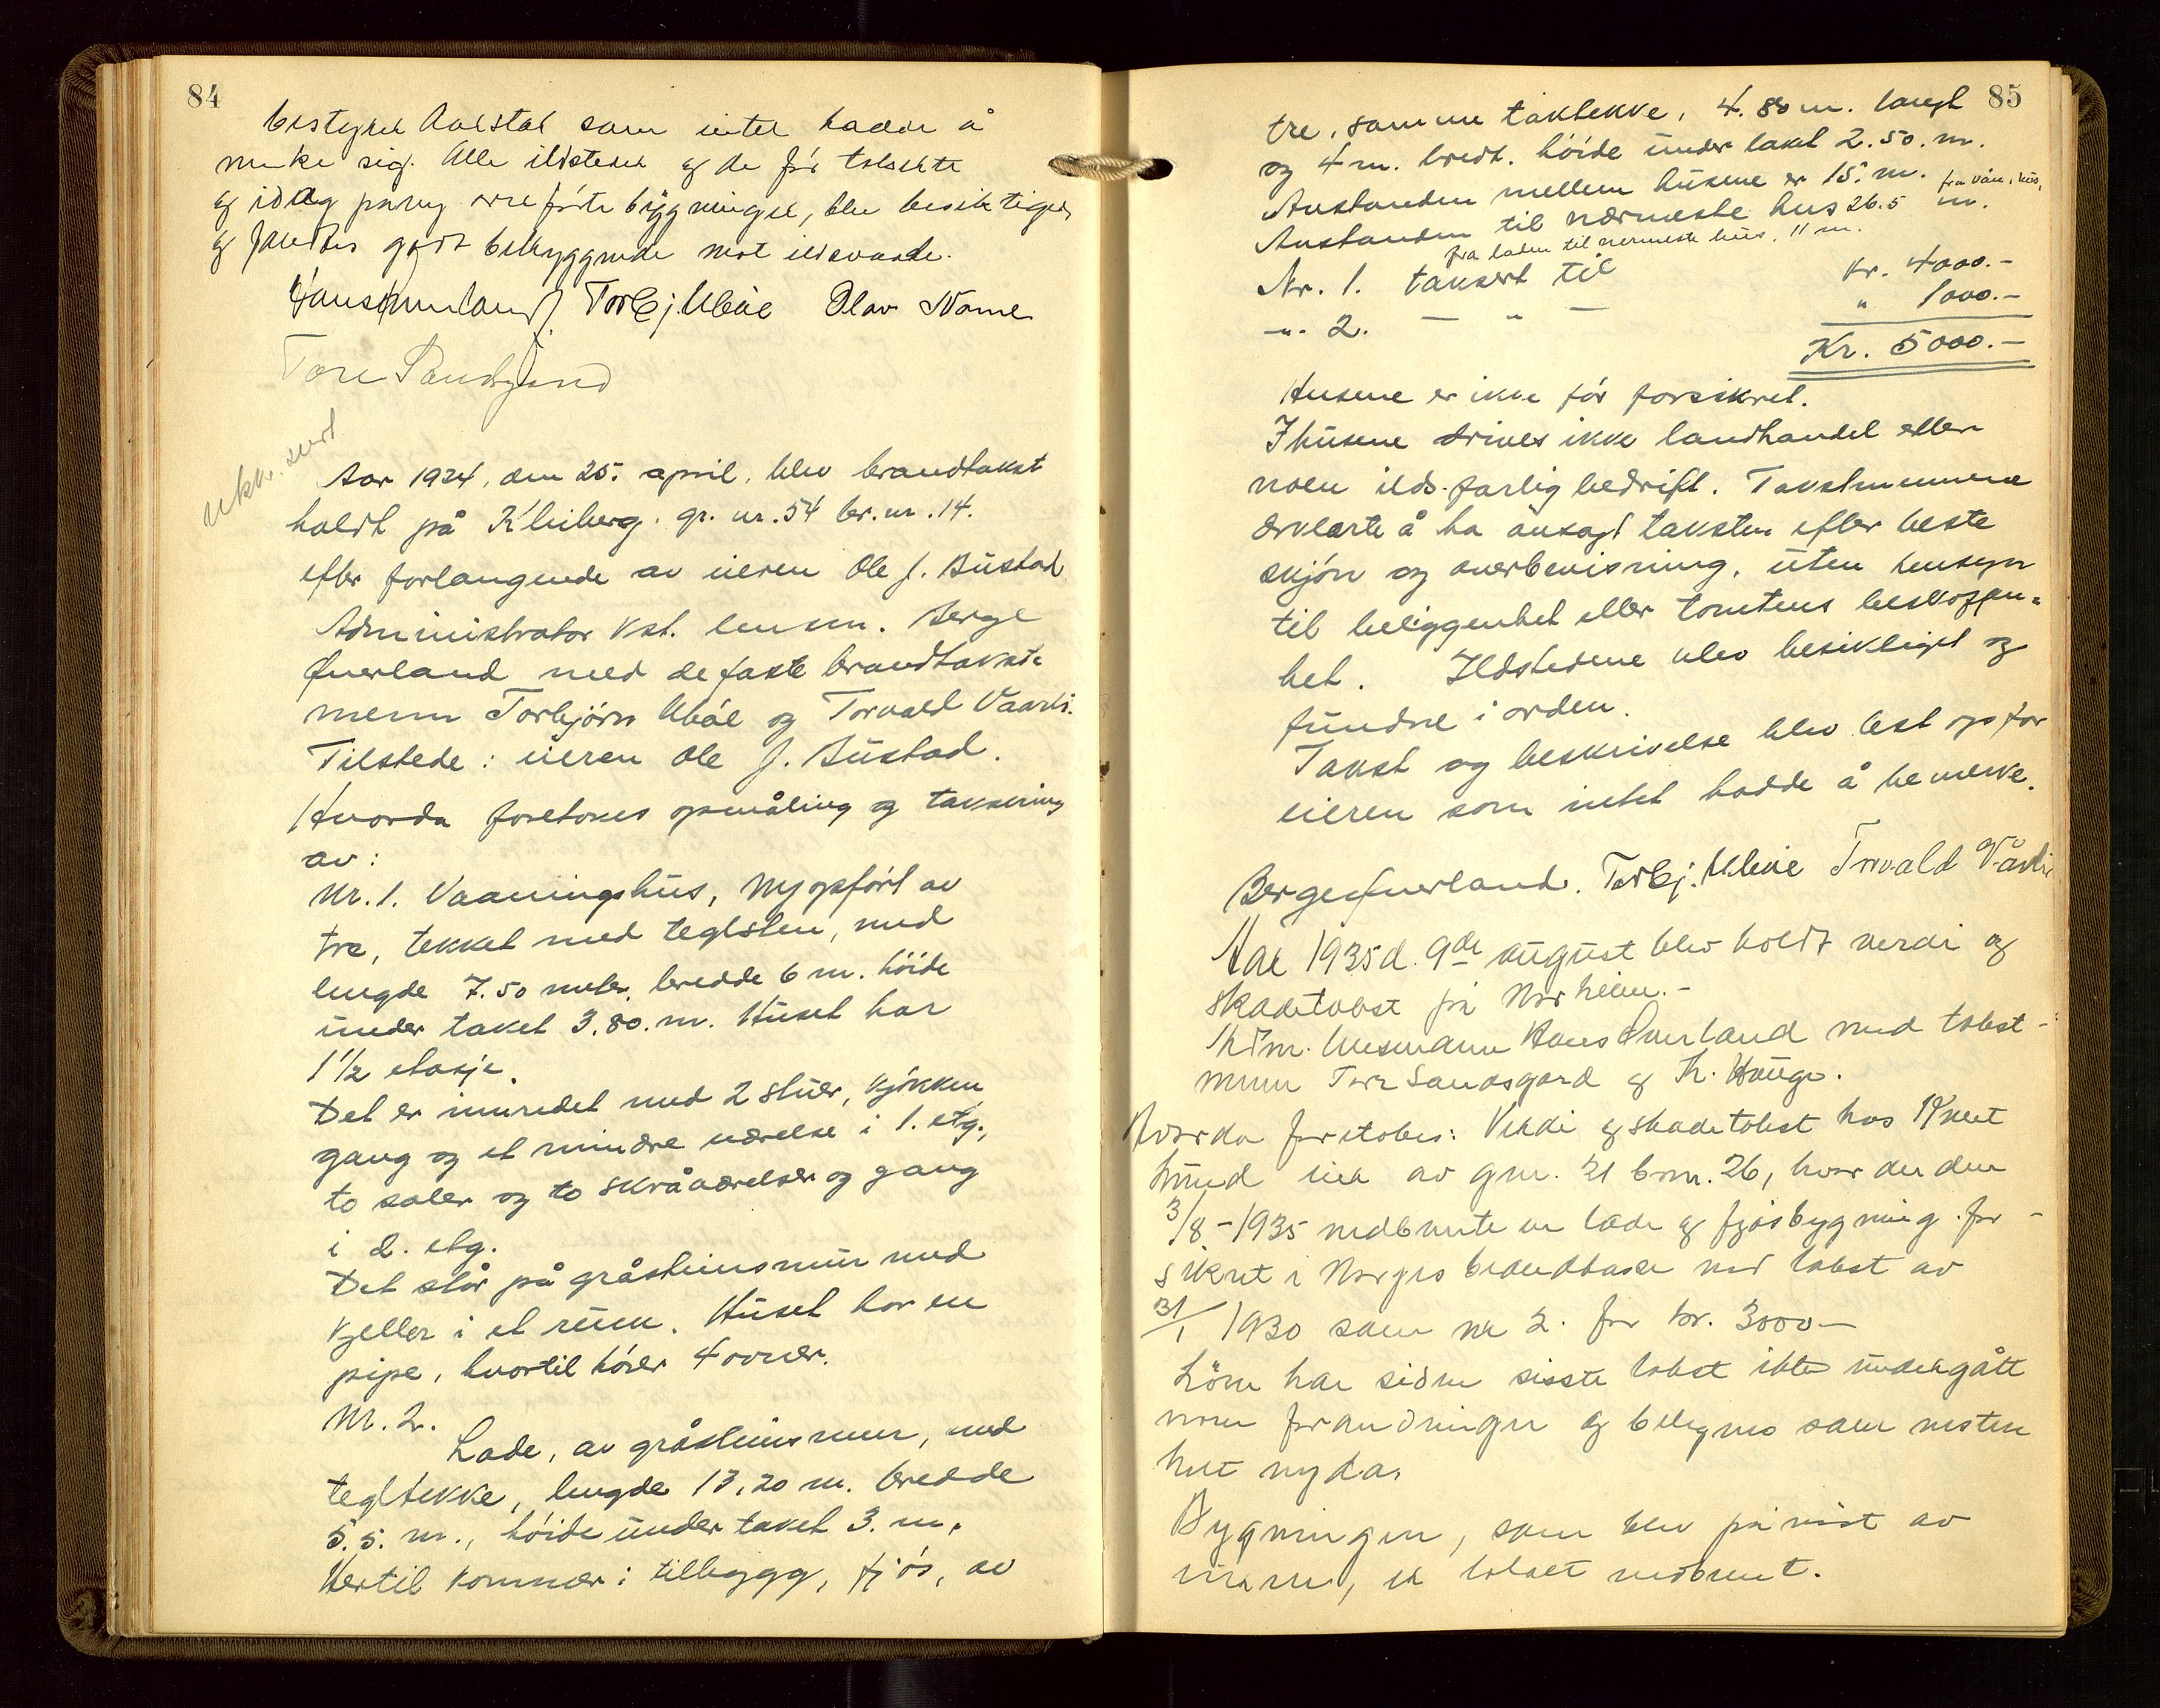 84
bestyrer Aalstat som intet hadde å
merke sig. Alle ildsteder og de før takserte
og idag påny opførte bygninger, blev besiktiget
og fandtes godt betryggende mot ildsvaade.
Hans Qverland Torbj. Ubøe Olav Name
Tore Sandsgard
Utskr. sent
Aar 1934, den 25. april, blev brandtakst
holdt på Kleiberg. gr. nr. 54 br. nr. 14.
efter forlangende av eieren Ole J. Bustad
Administrator kst. lensm. Berge
Qverland med de faste brandtakst-
menn Torbjørn Ubøe og Torvald Vaarli.
Tilstede: eieren Ole J. Bustad.
Hvorda foretokes opmåling og taksering
av:
Nr. 1. Vaaningshus, nyopført av
tre, tekket med teglsten, med
lengde 7.50 meter, bredde 6 m. høide
under taket 3.80. m. Huset har
1 1/2 etasje.
Det er innredet med 2 stuer, kjøkken
gang og et mindre værelse i 1. etg.,
to saler og to skråværelser og gang
i 2. etg.
Det står på gråsteinsmur med
kjeller i et rum. Huset har en
pipe, hvortil hører 4 ovner.
Nr. 2.
Lade, av gråsteinsmur, med
tegltekke, lengde 13,20 m. bredde
5.5. m., høide under taket 3. m.
Hertil kommer: tilbygg, fjøs, av
85
tre, samme taktekke, 4.80 m. langt
og 4 m. bredt. høide under taket 2.50. m.
Avstanden mellem husene er 15. m.
Avstanden til nærmeste hus 26.5 m. fra vån. hus,
fra laden til nermeste hus. 11 m.
Nr. 1. taksert til kr. 4000.-
-„- 2. — „ — „ 1000.-
Kr. 5000.-
Husene er ikke før forsikret.
I husene drives ikke landhandel eller
noen ilds-farlig bedrift. Takstmennene
erklærte å ha ansagt taksten efter beste
skjøn og overbevisning, uten hensyn
til beliggenhet eller tomtens beskaffen-
het. Ildstedene blev besiktiget og
fundne i orden.
Takst og beskrivelse blev lest op for
eieren som intet hadde å bemerke.
Berge Qverland. Torbj. Ubøe Torvald Vårli
Aar 1935 d. 9de august blev holdt verdi og
skadetakst på Norheim.-
Adm. lensmann Hans Qverland med takst-
menn Tore Sandsgard og Th. Hauge.
Hvorda foretokes: Verdi og skadetakst hos Knut
Lund eier av gnr. 21 bnr. 26, hvor der den
3/8-1935 nedbrente en lade og fjøsbygning. for-
sikret i Norges brandkasse ved takst av
31/1 1930 som nr 2. for kr. 3000-
Løen har siden siste takst ikke undergått
noen forandringer og betegnes som nesten
helt nyda.
Bygningen, som blev påvist av
eieren, er totalt nedbrent.